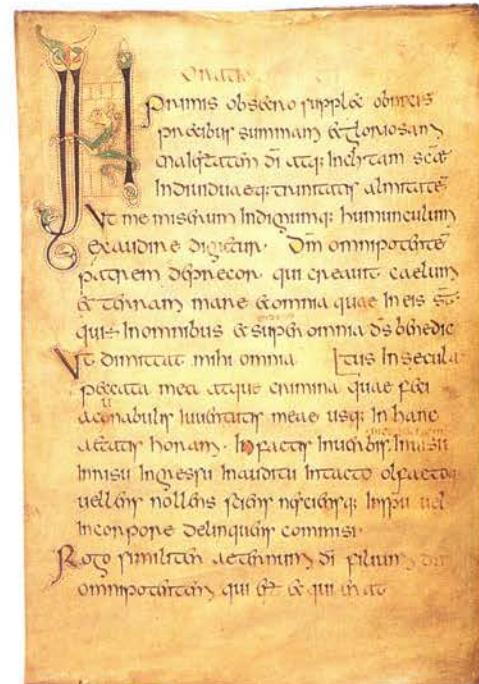 Oratio
IN primis obsecro supplex obnixis
praecibus summam & gloriosam
maiestatem dī atq; inclitam scāe
indiuiduaeq; trinitatis almitatē
Ut me miserum indignumq; humunculum
exaudire dignetur. Dm̄ omnipotentē
patrem deprecor qui creauit caelum
& terram mare & omnia quae in eis st̄
quis in omnibus & super omnia d̄s bēnedic
Ut dimittat mihi omnia Ltus in secula
peccata mea atque crimina quae feci
a conabulis iuuentutis meae usq; in hanc
aetatis horam. In factis in uerbis. In uisu
In risu In gressu In auditu In tacto olfactoq;
uellens nollens sciens nesciensq; In sp̄u uel
In corpore delinquens commisi.
Rogo similiter aeternum dī filium dm̄
omnipotentem qui ē & qui erat